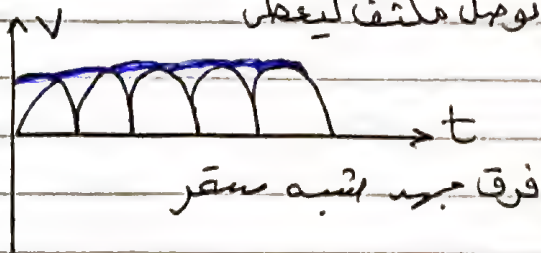 يوصل مكثف ليعطى
V
t
فرق جهد شبه مستقر